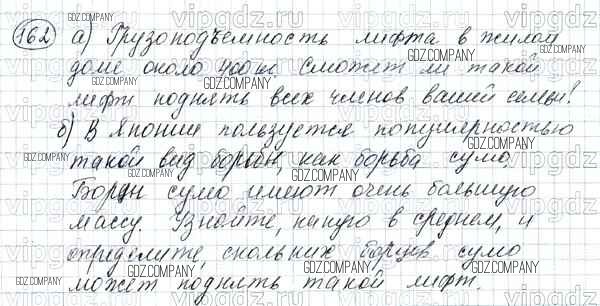 162 а) Грузоподъемность лифта в жилом
доме около 400 кг. Сможет ли такой
лифт поднять всех членов вашей семьи?
б) В Японии пользуется популярностью
такой вид борьбы, как борьба сумо.
Борцы сумо имеют очень большую
массу. Узнайте, какую в среднем, и
определите, скольких борцов сумо
может поднять такой лифт.
vipgdz.ru
GDZ.COMPANY